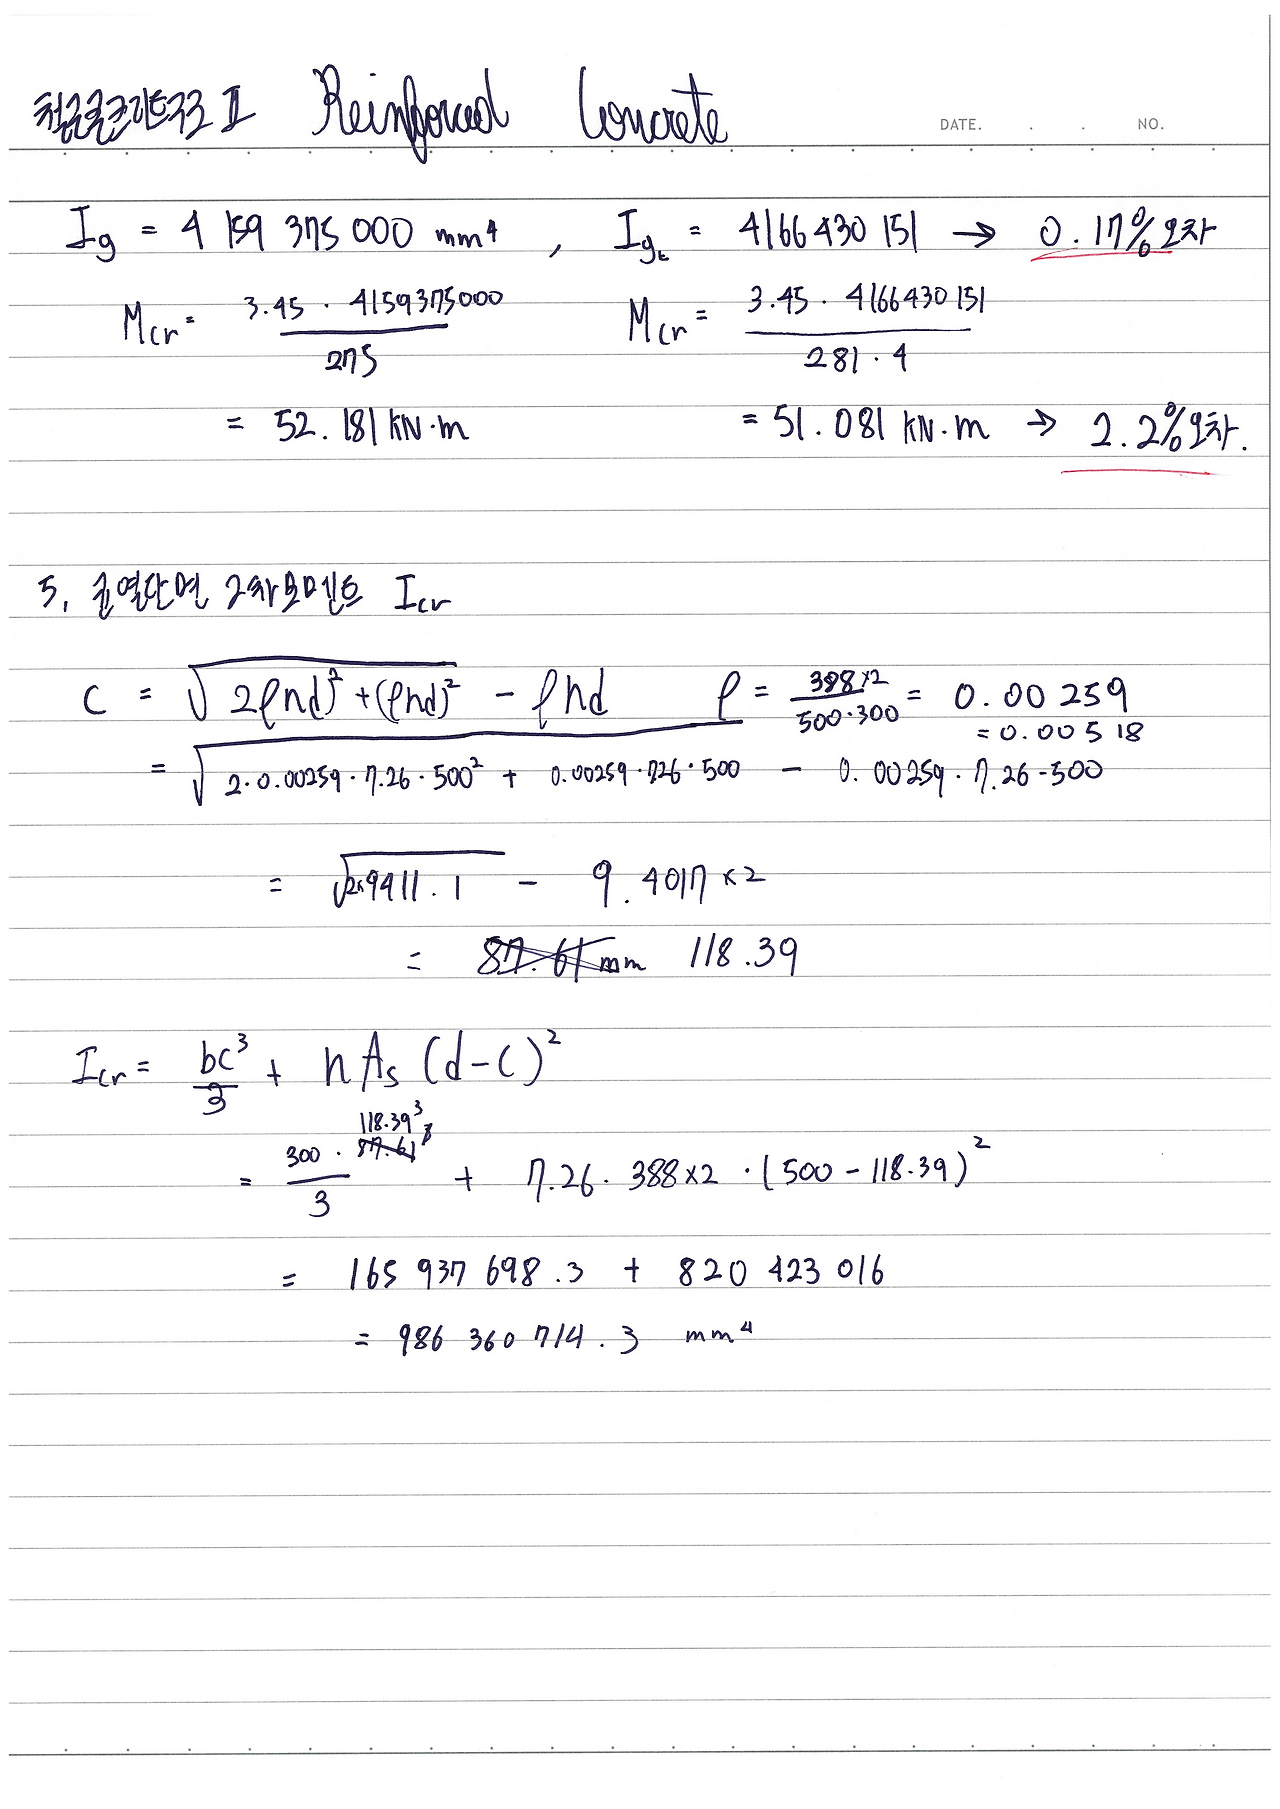 철근콘크리트구조 II Reinforced Concrete DATE. . . NO.
Ig = 4 159 375 000 mm⁴ , Igt = 4166 430 151 → 0.17% 오차
Mcr = 3.45 · 4159375000 / 275 Mcr = 3.45 · 4166430151 / 281.4
= 52.181 kN·m = 51.081 kN·m → 2.2% 오차.
5. 균열단면 2차모멘트 Icr
C = √(2ρnd)² + (ρnd)² - ρnd ρ = 388×2 / 500·300 = 0.00259
= 0.00518
= √2·0.00259·7.26·500² + 0.00259·726·500 - 0.00259·7.26·500
= √2×9411.1 - 9.4017×2
= 87.61mm 118.39
Icr = bc³/3 + nAs (d-c)²
118.39³
= 300 · 87.61³ / 3 + 7.26 · 388×2 · (500 - 118.39)²
= 165 937 698.3 + 820 423 016
= 986 360 714.3 mm⁴